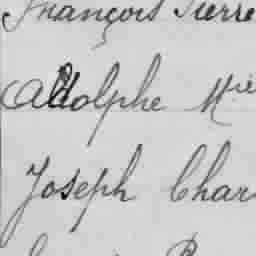 François Pierre
Adolphe Mie
Joseph Char